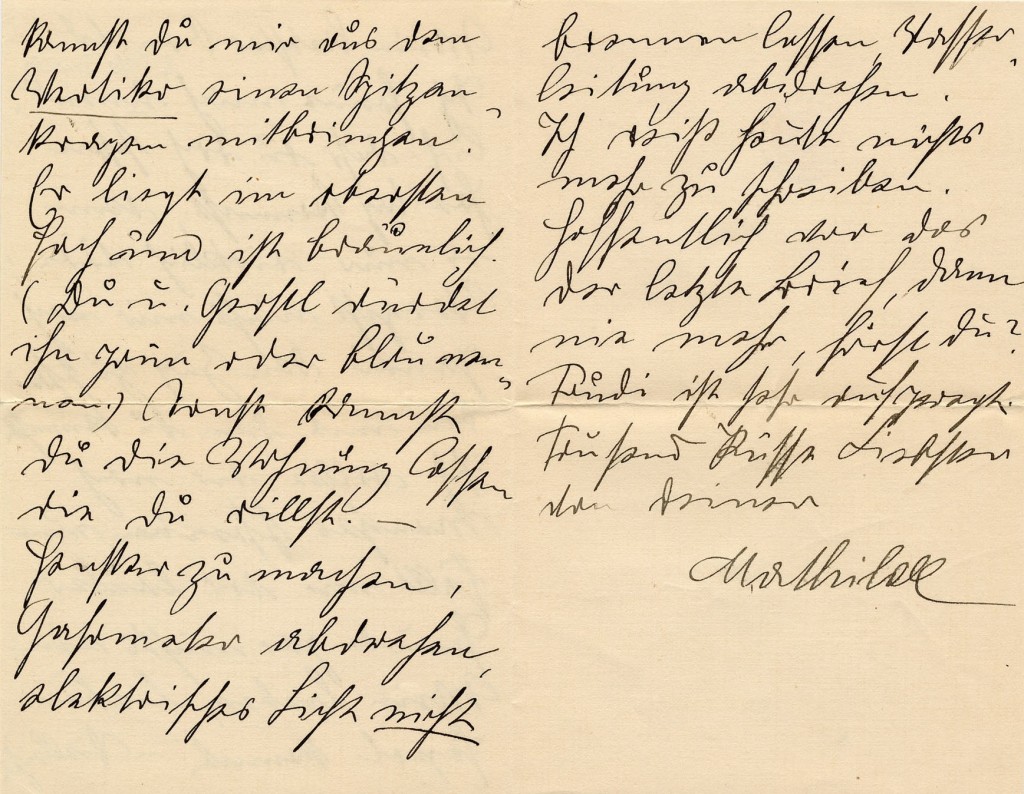 kannst du mir aus dem
Vertiko einen Spitzen-
kragen mitbringen.
Er liegt im obersten
Fach und ist bräunlich.
(Du u. Gerstl würdet
ihn grün oder blau nen-
nen.) Sonst kannst
du die Wohnung lassen
wie du willst. –
Fenster zu machen,
Gasometer abdrehen,
elektrisches Licht nicht
brennen lassen, Wasser-
leitung abdrehen.
Ich weiß heute nichts
mehr zu schreiben.
Hoffentlich war das
der letzte Brief, dann
nie mehr, hörst du?
Trudi ist sehr aufgeregt.
Tausend Küsse Liebster
von deiner
Mathilde